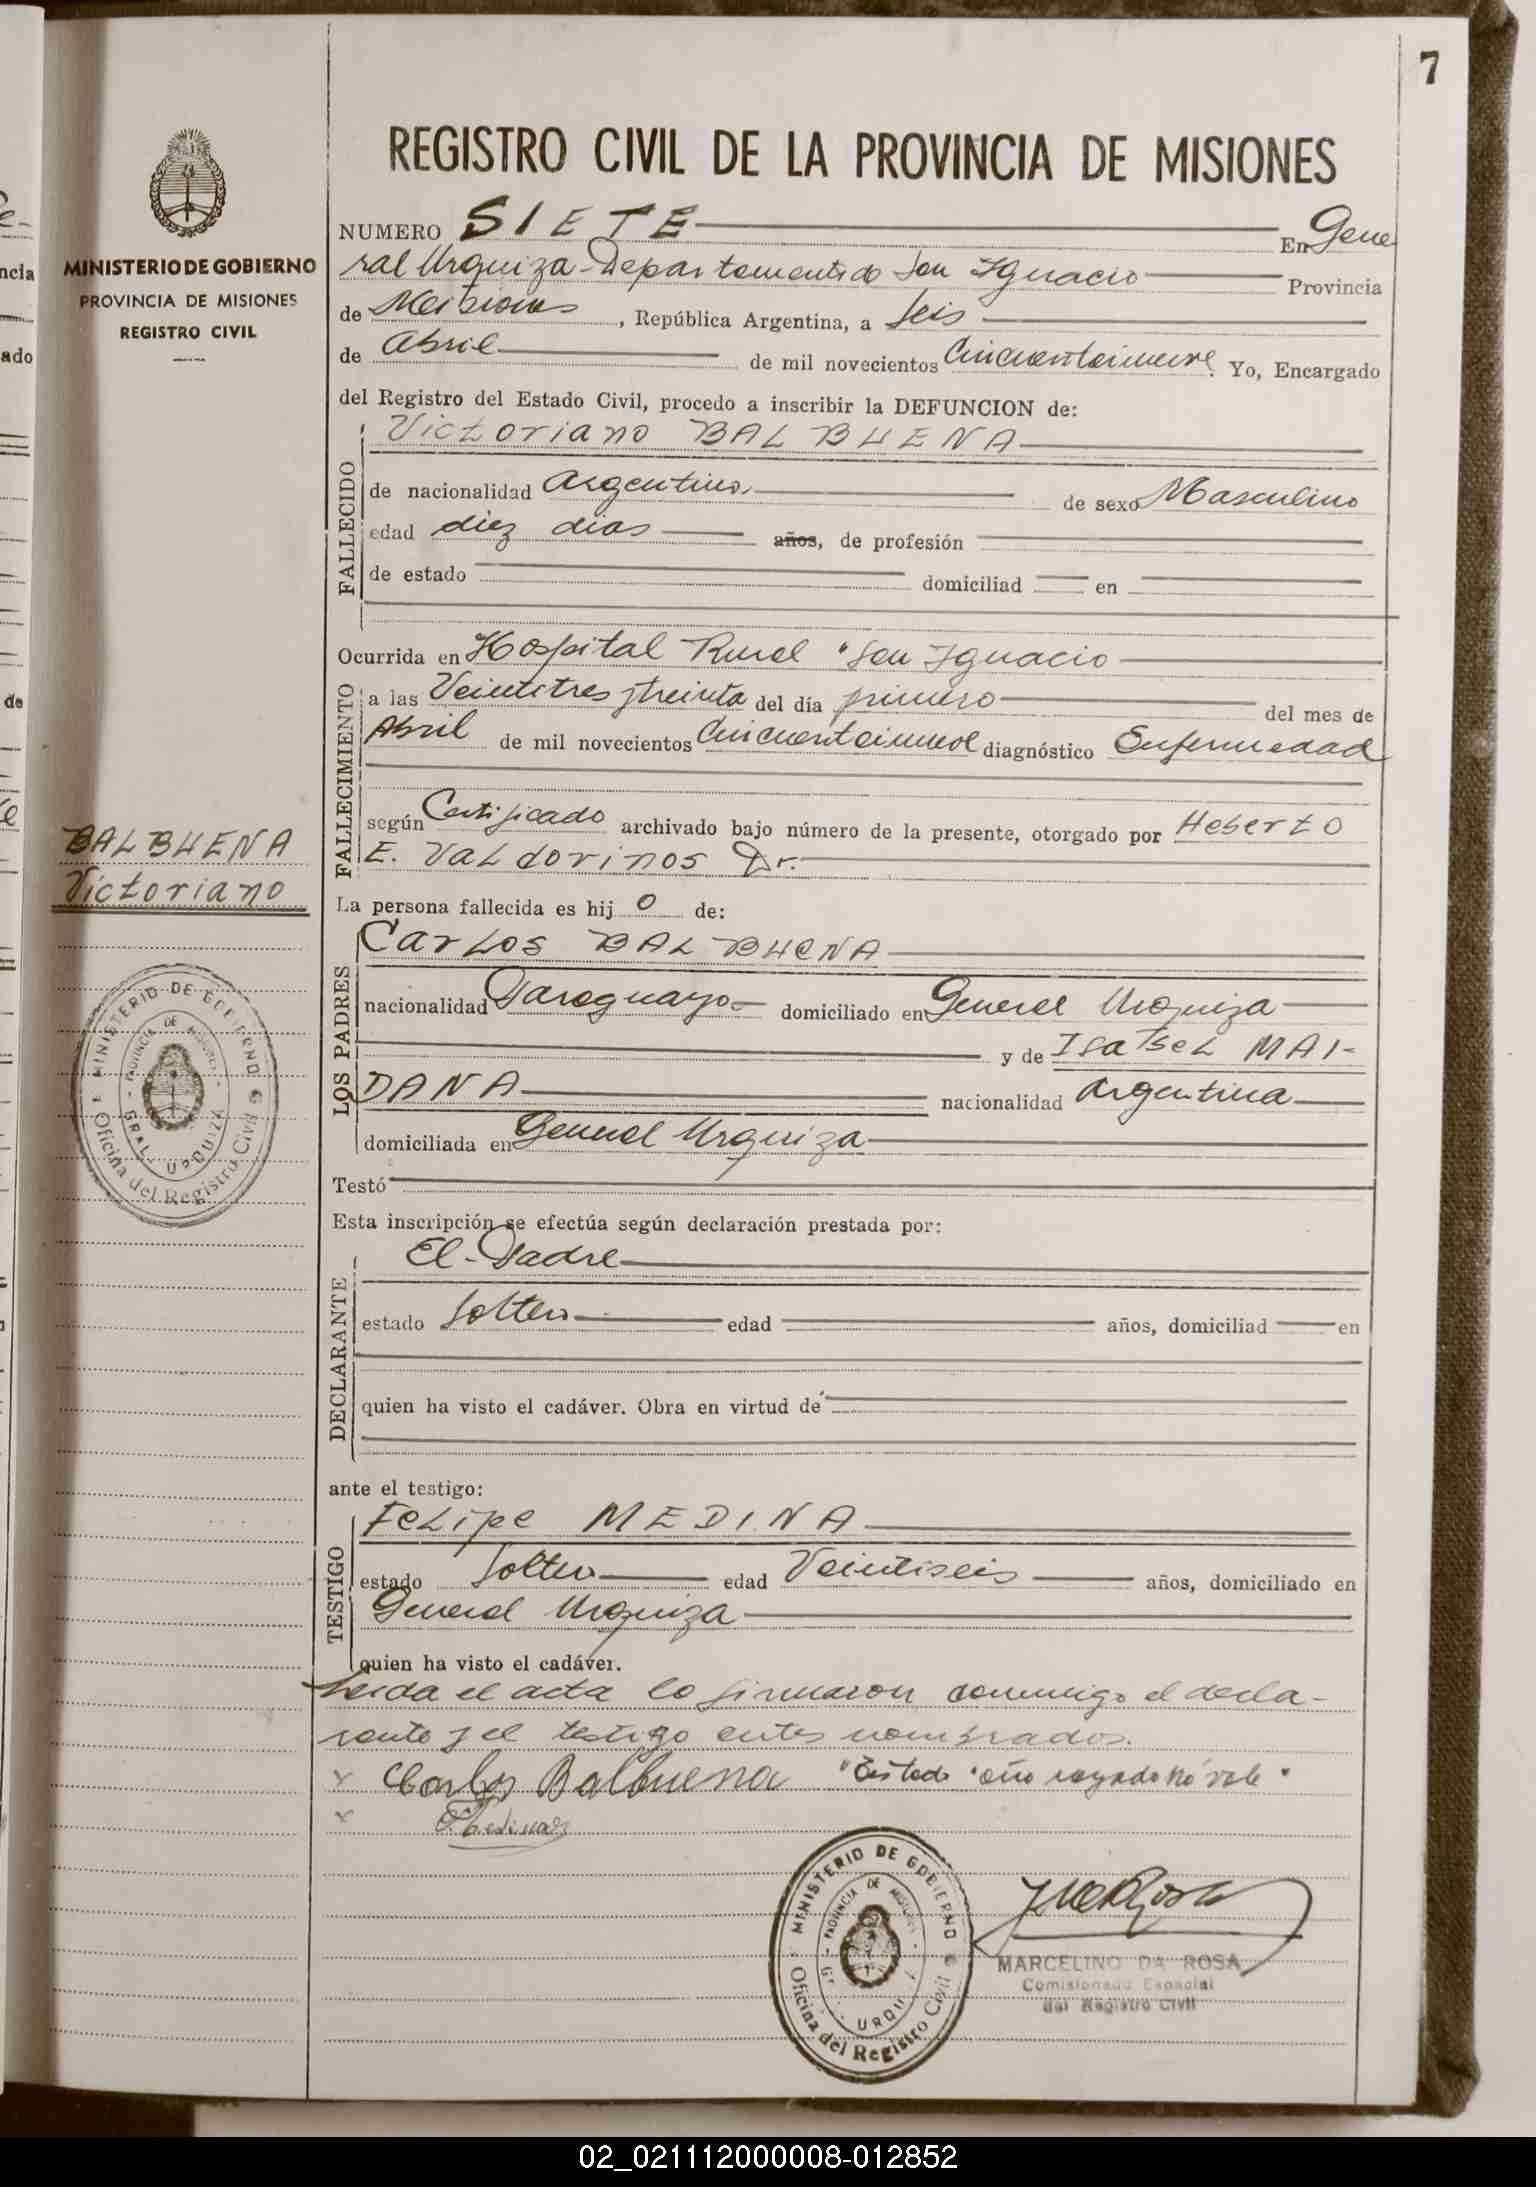 7
REGISTRO CIVIL DE LA PROVINCIA DE MISIONES
MINISTERIO DE GOBIERNO
PROVINCIA DE MISIONES
REGISTRO CIVIL
NUMERO SIETE En Gene
ral Urquiza - Departamento do San Ignacio Provincia
de Misiones, República Argentina, a Seis
de Abril de mil novecientos Cincuentainueve. Yo, Encargado
del Registro del Estado Civil, procedo a inscribir la DEFUNCION de:
FALLECIDO
Victoriano BALBUENA
de nacionalidad Argentino de sexo Masculino
edad diez dias años, de profesión
de estado domiciliad en
Ocurrida en Hospital Rural "San Ignacio
FALLECIMIENTO
a las Veintitres ytreinta del día primero del mes de
Abril de mil novecientos diagnóstico Enfermedad
según Certificado archivado bajo número de la presente, otorgado por Heberto
E. Valdorinos Dr.
BALBUENA
Victoriano
La persona fallecida es hij o de:
LOS PADRES
Carlos BALBUENA
nacionalidad Paraguayo domiciliado en General Urquiza
y de Isabel MAI-
DANA nacionalidad Argentina
domiciliada en General Urquiza
MINISTERIO DE GOBIERNO
PROVINCIA DE MISIONES
GRAL. URQUIZA
Oficina del Registro Civil
Testó
Esta inscripción se efectúa según declaración prestada por:
DECLARANTE
El Padre
estado Soltero edad años, domiciliad en
quien ha visto el cadáver. Obra en virtud de
ante el testigo:
TESTIGO
Felipe MEDINA
estado Soltero edad Veintiseis años, domiciliado en
General Urquiza
quien ha visto el cadáver.
Leida el acta lo firmaron conmigo el decla-
rante y el testigo antes nombrados.
Carlos Balbuena "Testado "año rayado no vale"
MINISTERIO DE GOBIERNO
PROVINCIA DE MISIONES
URQU
Oficina del Registro Civil
MARCELINO DA ROSA
Comisionado Especial
del Registro Civil
02_021112000008-012852